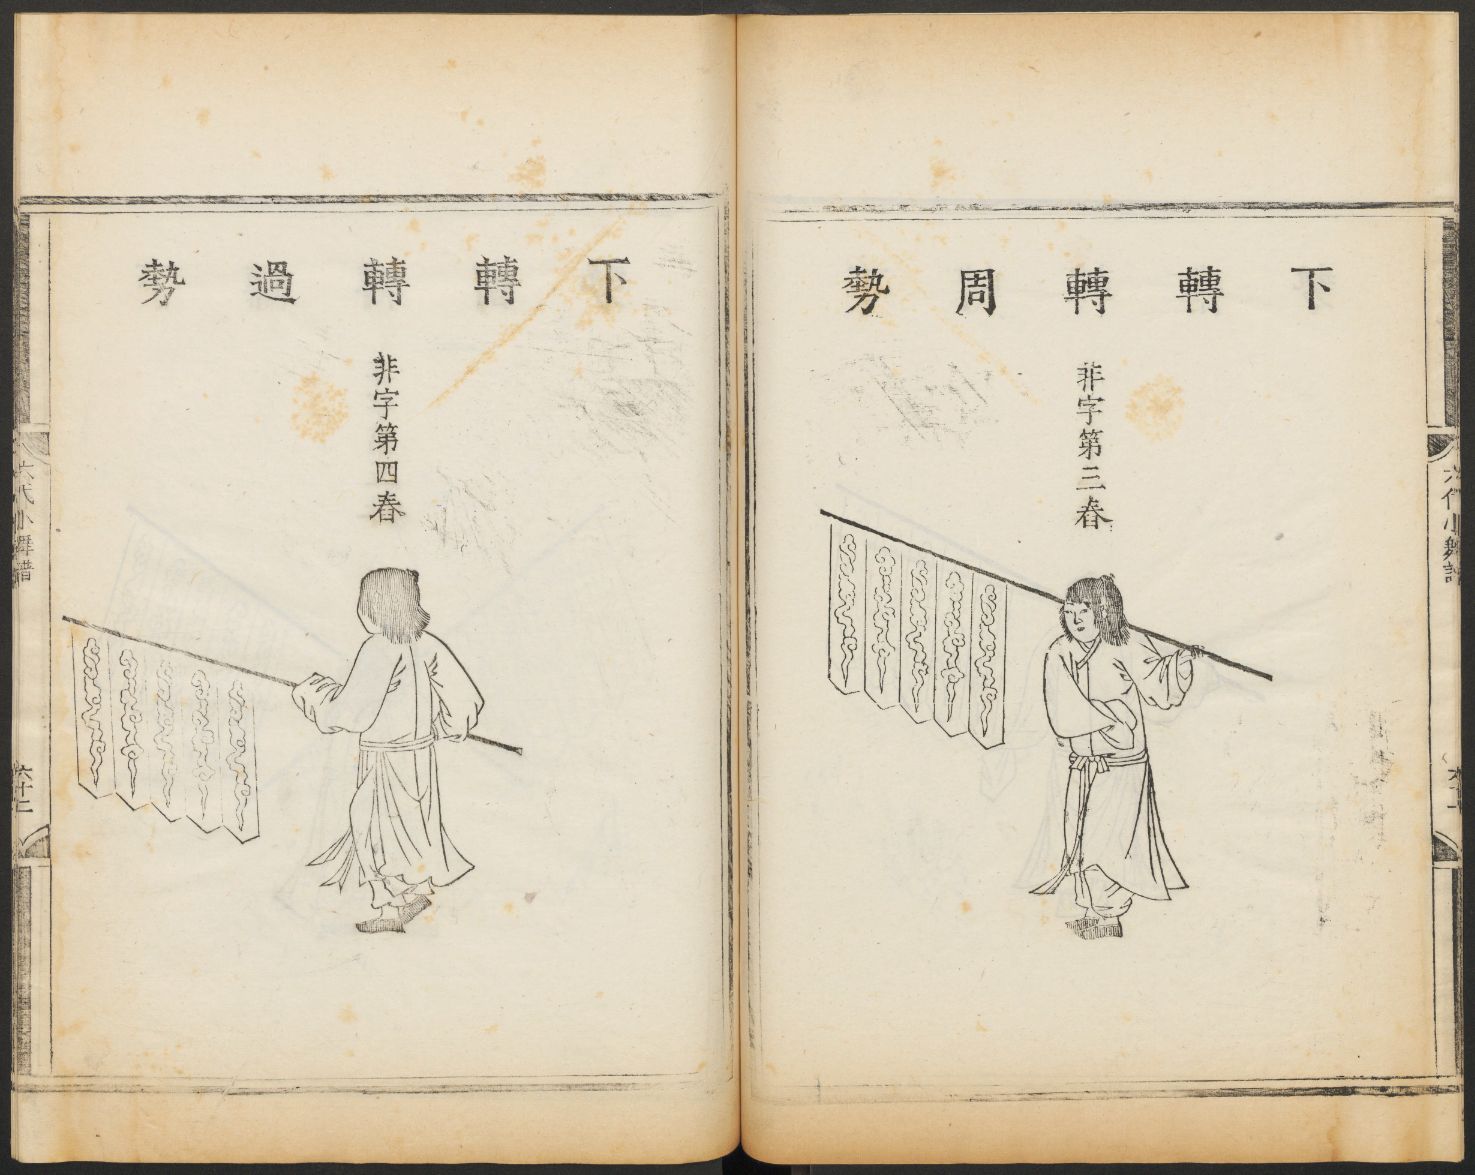 下轉轉周勢
非字第三舂
六代小舞譜
六十一
下轉轉過勢
非字第四舂
六代小舞譜
六十二